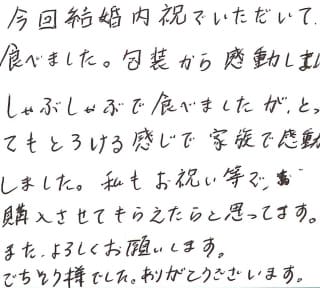 今回結婚内祝でいただいて、
食べました。包装から感動しまし
しゃぶしゃぶで食べましたが、とっ
てもとろける感じで家族で感動
しました。私もお祝い等で、お
購入させてもらえたらと思ってます。
また、よろしくお願いします。
ごちそう様でした。ありがとうございます。